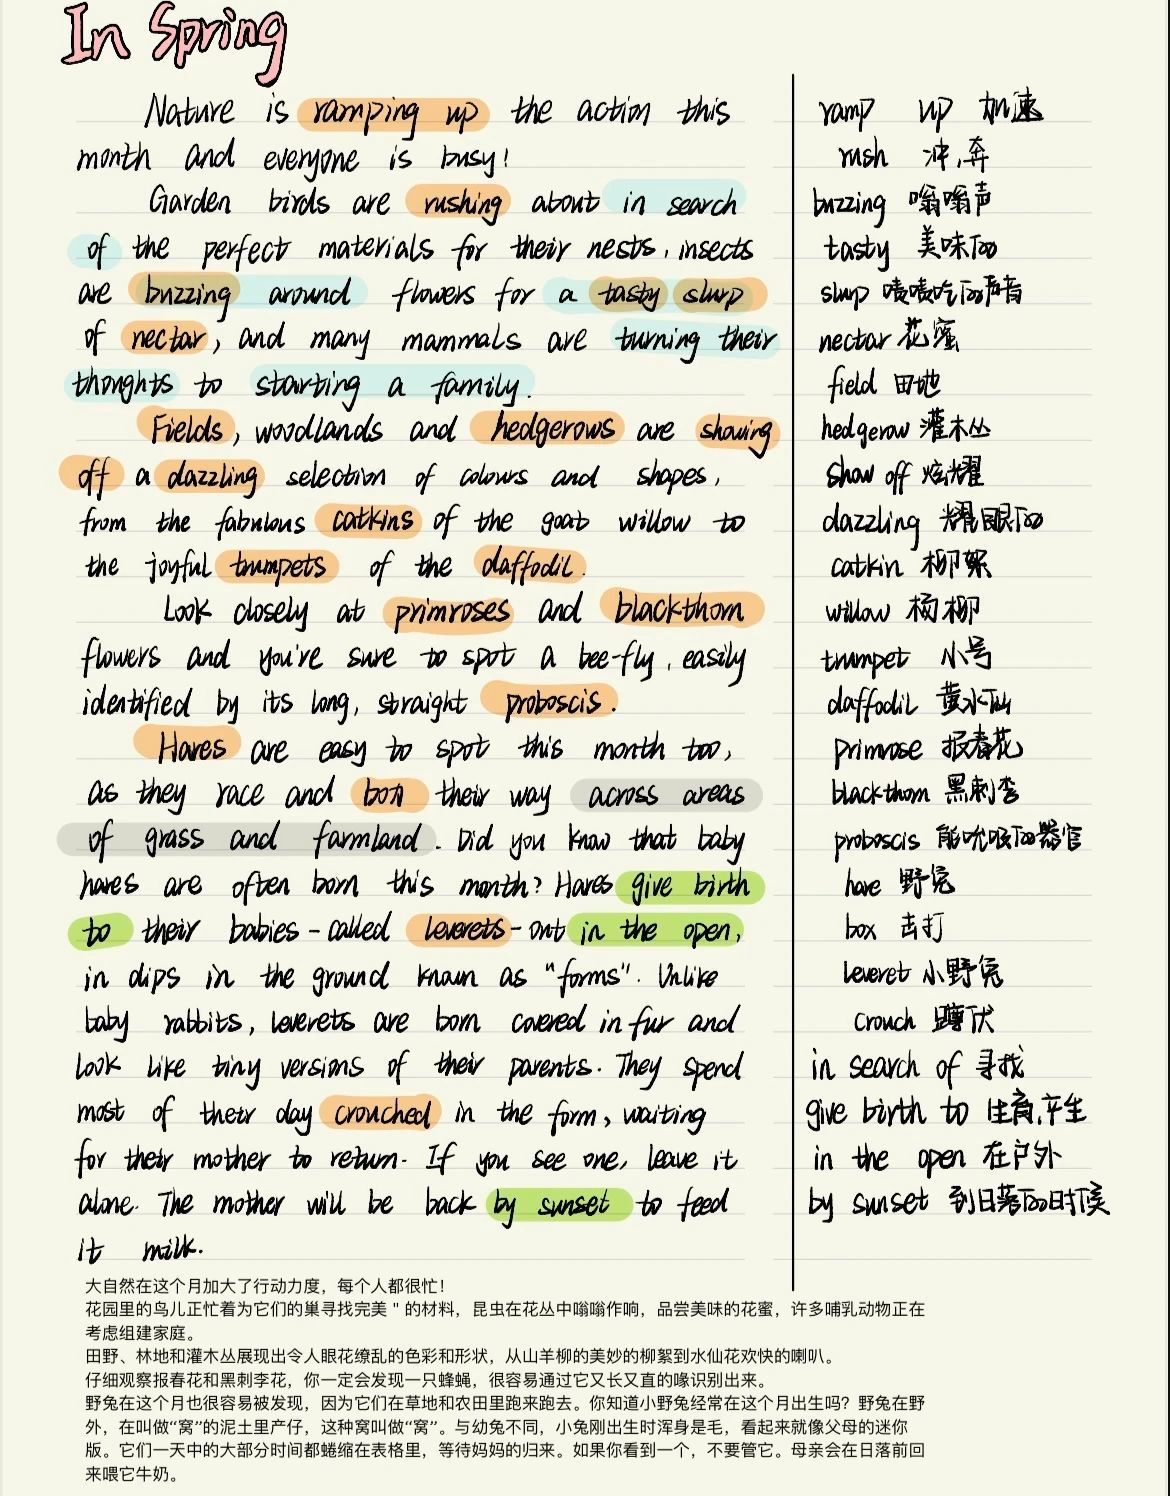 In Spring
Nature is ramping up the action this
month and everyone is busy!
Garden birds are rushing about in search
of the perfect materials for their nests, insects
are buzzing around flowers for a tasty slurp
of nectar, and many mammals are turning their
thoughts to starting a family.
Fields, woodlands and hedgerows are showing
off a dazzling selection of colours and shapes,
from the fabulous catkins of the goat willow to
the joyful trumpets of the daffodil.
Look closely at primroses and blackthorn
flowers and you're sure to spot a bee-fly, easily
identified by its long, straight proboscis.
Hares are easy to spot this month too,
as they race and box their way across areas
of grass and farmland. Did you know that baby
hares are often born this month? Hares give birth
to their babies-called leverets-out in the open,
in dips in the ground known as "forms". Unlike
baby rabbits, leverets are born covered in fur and
look like tiny versions of their parents. They spend
most of their day crouched in the form, waiting
for their mother to return. If you see one, leave it
alone. The mother will be back by sunset to feed
it milk.
ramp up 加速
rush 冲,奔
buzzing 嗡嗡声
tasty 美味的
slurp 啧啧吃的声音
nectar 花蜜
field 田地
hedgerow 灌木丛
show off 炫耀
dazzling 耀眼的
catkin 柳絮
willow 杨柳
trumpet 小号
daffodil 黄水仙
primrose 报春花
blackthorn 黑刺李
proboscis 能吮吸的器官
hare 野兔
box 击打
leveret 小野兔
crouch 蹲伏
in search of 寻找
give birth to 生育,产生
in the open 在户外
by sunset 到日落的时候
大自然在这个月加大了行动力度，每个人都很忙！
花园里的鸟儿正忙着为它们的巢寻找完美＂的材料，昆虫在花丛中嗡嗡作响，品尝美味的花蜜，许多哺乳动物正在
考虑组建家庭。
田野、林地和灌木丛展现出令人眼花缭乱的色彩和形状，从山羊柳的美妙的柳絮到水仙花欢快的喇叭。
仔细观察报春花和黑刺李花，你一定会发现一只蜂蝇，很容易通过它又长又直的喙识别出来。
野兔在这个月也很容易被发现，因为它们在草地和农田里跑来跑去。你知道小野兔经常在这个月出生吗？野兔在野
外，在叫做“窝”的泥土里产仔，这种窝叫做“窝”。与幼兔不同，小兔刚出生时浑身是毛，看起来就像父母的迷你
版。它们一天中的大部分时间都蜷缩在表格里，等待妈妈的归来。如果你看到一个，不要管它。母亲会在日落前回
来喂它牛奶。